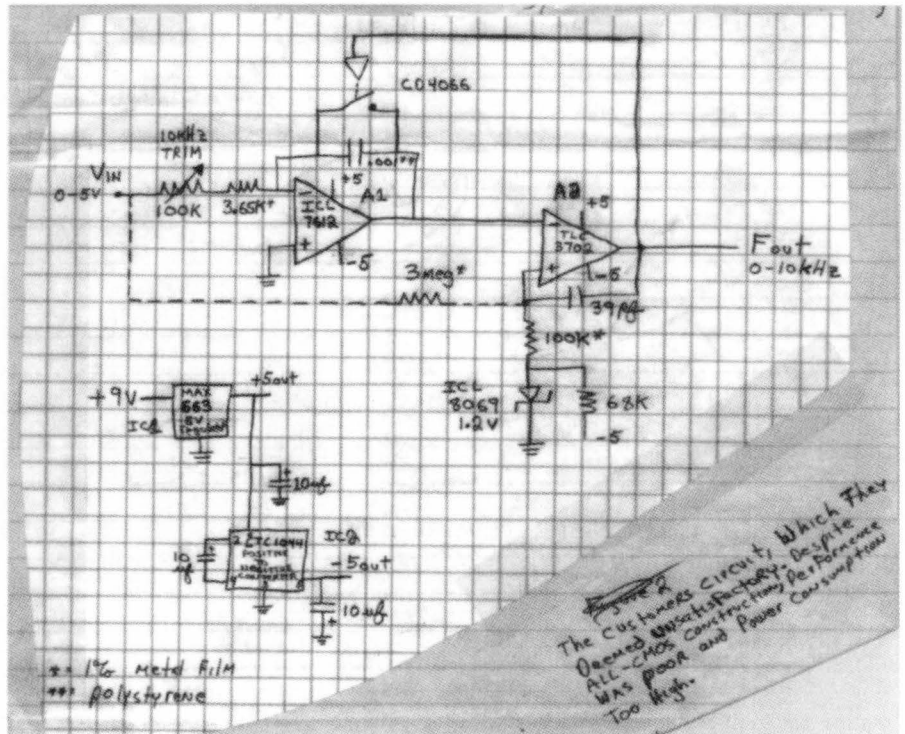 CD4066
10KHz
TRIM
VIN
0-5V
100K
3.65K*
.001**
+5
A1
ICL
7612
-5
A2
+5
TLC
3702
-5
Fout
0-10kHz
3meg*
39pf
100K*
ICL
8069
1.2V
68K
-5
+9V
MAX
663
5V
IC1
+5out
10uf
LTC1044
POSITIVE
TO
NEGATIVE
CONVERTER
IC2
2
4
3
10
uf
-5out
10uf
* = 1% metal Film
** = polystyrene
Figure 2
The Customers Circuit, Which They
Deemed unsatisfactory. Despite
ALL-CMOS Construction, Performance
Was poor and Power Consumption
Too High.